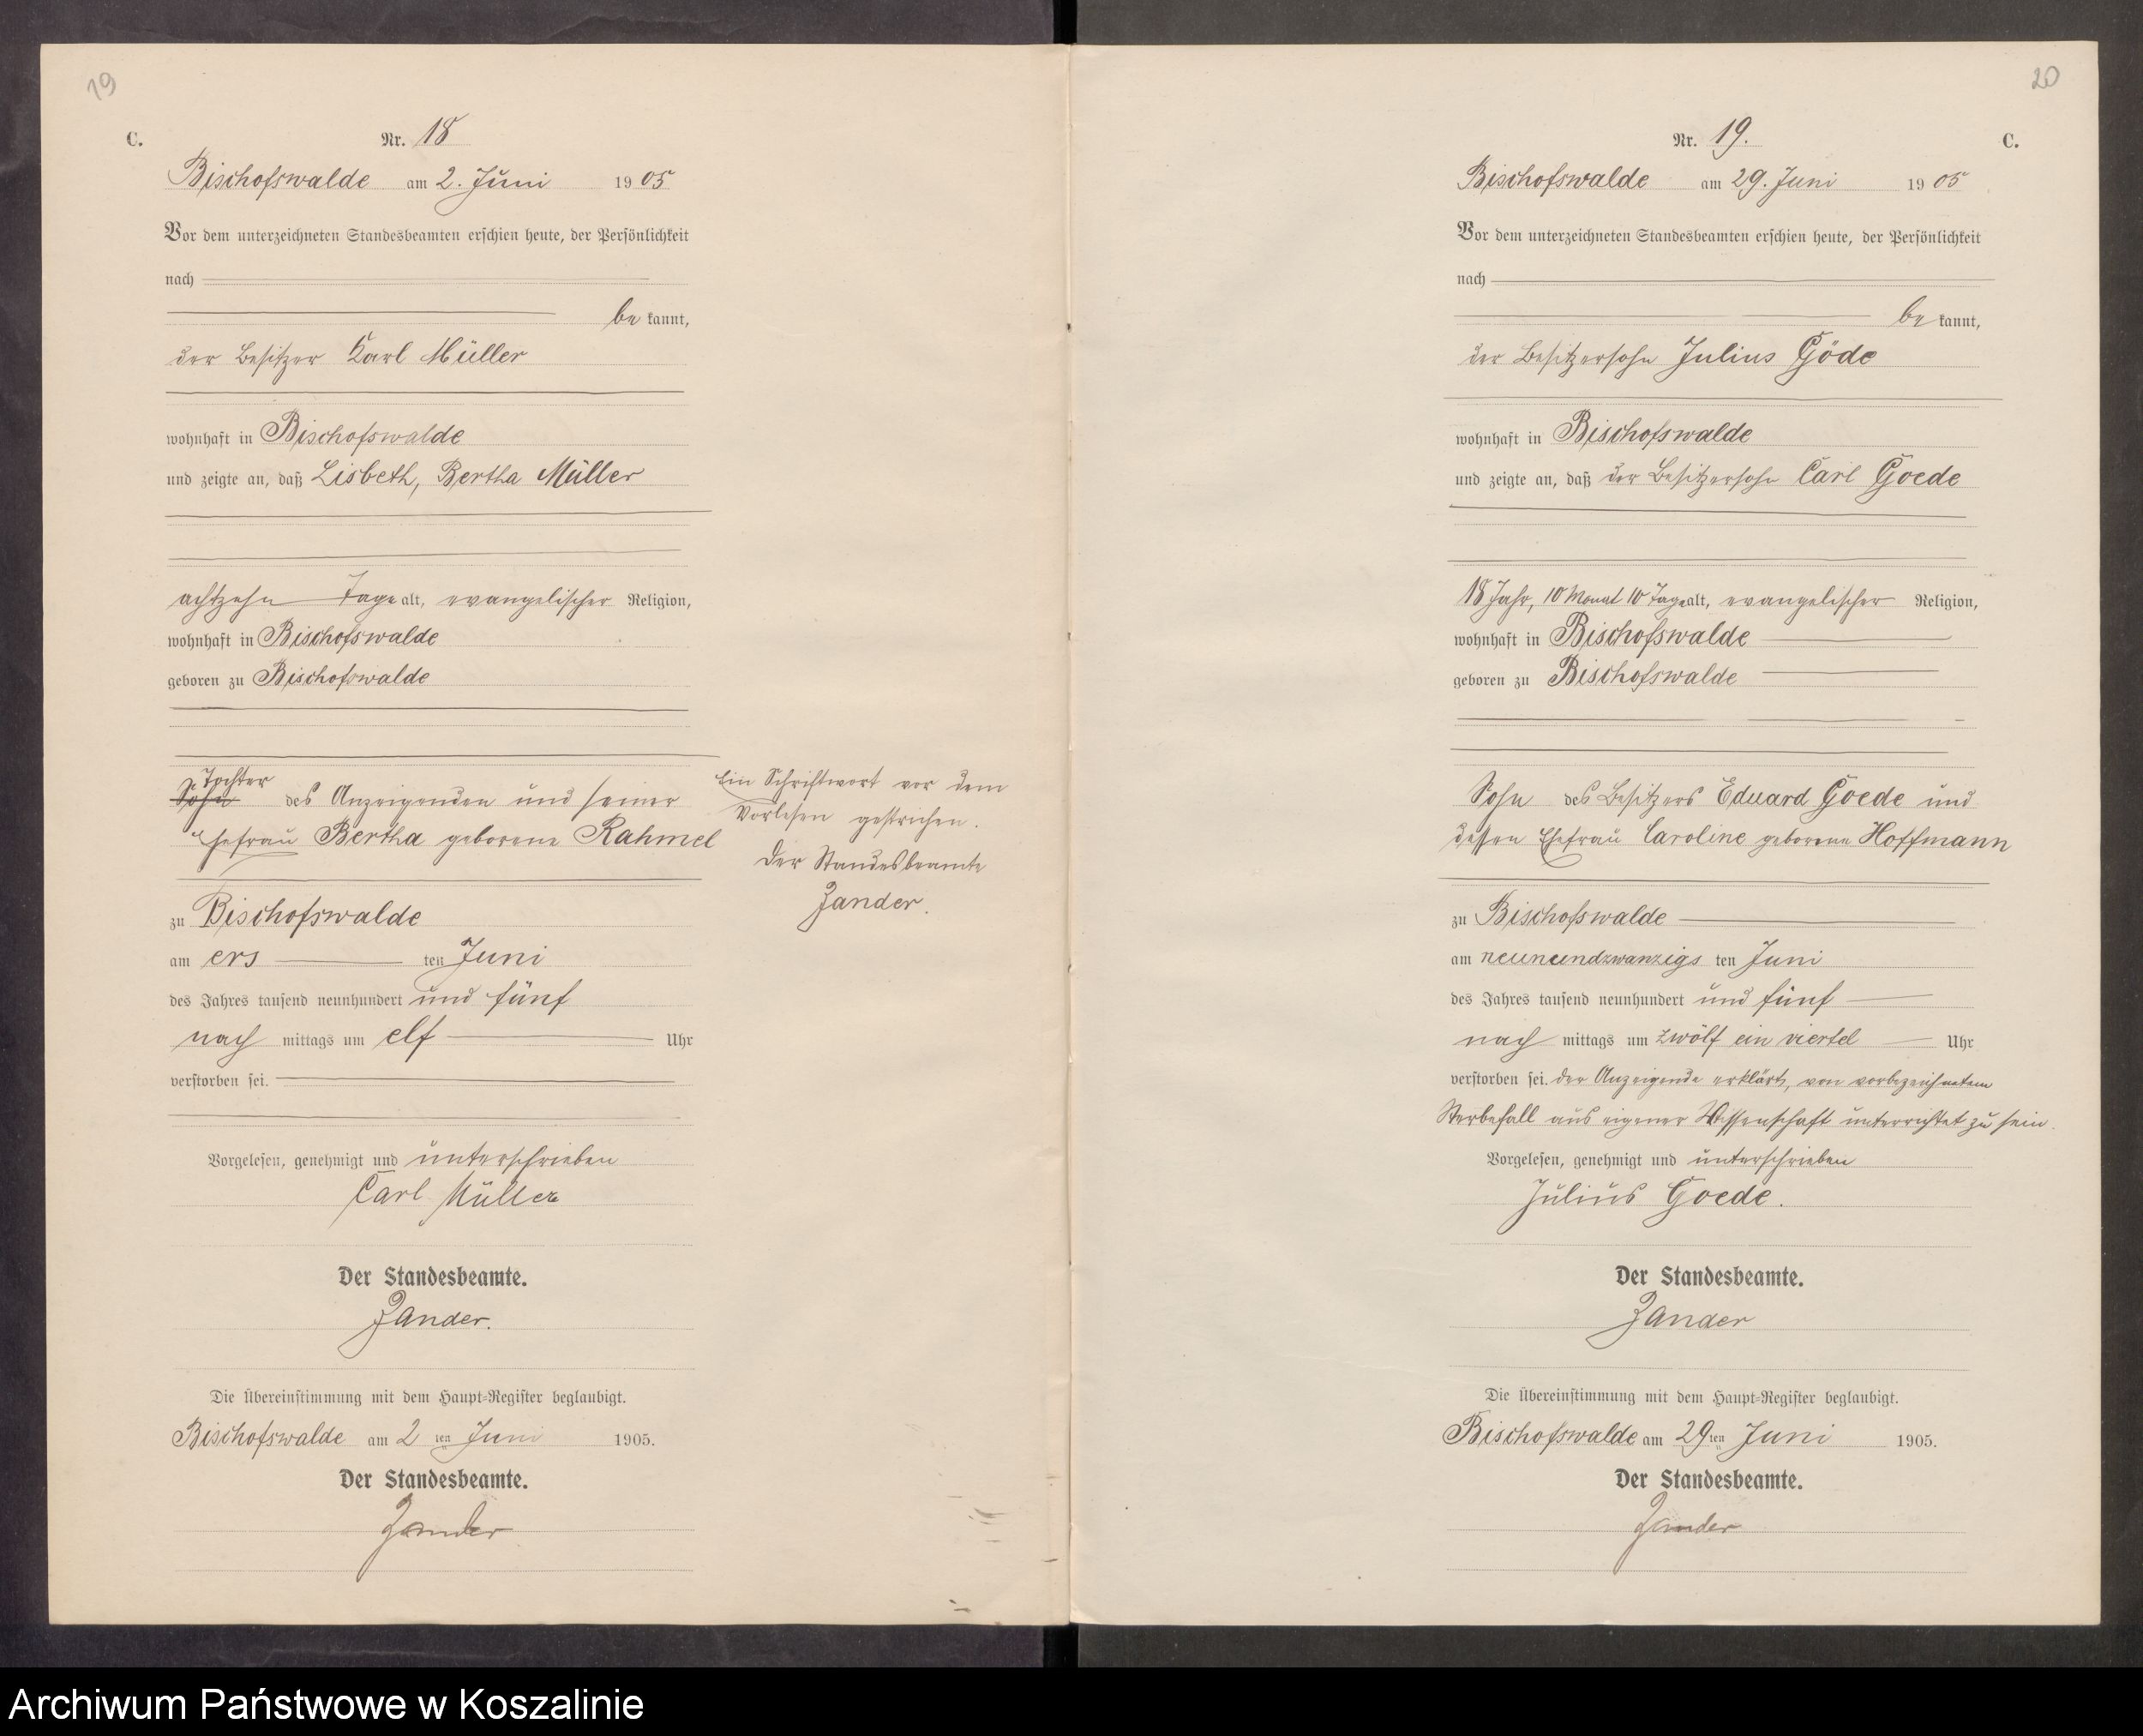 19
C.
Nr. 18
Bischofswalde am 2. Juni 1905
Vor dem unterzeichneten Standesbeamten erschien heute, der Persönlichkeit
nach
be kannt,
der Besitzer Karl Müller
wohnhaft in Bischofswalde
und zeigte an, daß Lisbeth, Bertha Müller
achtzehn Tage alt, evangelischer Religion,
wohnhaft in Bischofswalde
geboren zu Bischofswalde
Tochter
Sohn des Anzeigenden und seiner
Ehefrau Bertha geborene Rahmel
Ein Schriftwort vor dem
Vorlesen gestrichen.
Der Standesbeamte
Zander.
zu Bischofswalde
am ers ten Juni
des Jahres tausend neunhundert und fünf
nach mittags um elf Uhr
verstorben sei.
Vorgelesen, genehmigt und unterschrieben
Carl Müller
Der Standesbeamte.
Zander.
Die Übereinstimmung mit dem Haupt-Register beglaubigt.
Bischofswalde am 2 ten Juni 1905.
Der Standesbeamte.
Zander
20
C.
Nr. 19.
Bischofswalde am 29. Juni 1905
Vor dem unterzeichneten Standesbeamten erschien heute, der Persönlichkeit
nach
be kannt,
der Besitzersohn Julius Göde
wohnhaft in Bischofswalde
und zeigte an, daß der Besitzersohn Carl Goede
18 Jahr, 10 Monat 10 Tage alt, evangelischer Religion,
wohnhaft in Bischofswalde
geboren zu Bischofswalde
Sohn des Besitzers Eduard Goede und
dessen Ehefrau Caroline geborene Hoffmann
zu Bischofswalde
am neunundzwanzigs ten Juni
des Jahres tausend neunhundert und fünf
nach mittags um zwölf ein viertel Uhr
verstorben sei. Der Anzeigende erklärt, von vorbezeichnetem
Sterbefall aus eigener Wissenschaft unterrichtet zu sein.
Vorgelesen, genehmigt und unterschrieben
Julius Goede.
Der Standesbeamte.
Zander
Die Übereinstimmung mit dem Haupt-Register beglaubigt.
Bischofswalde am 29 ten Juni 1905.
Der Standesbeamte.
Zander
Archiwum Państwowe w Koszalinie